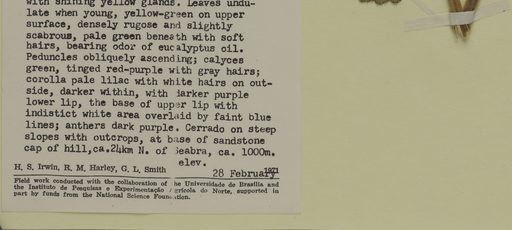 with shining yellow glands. Leaves undu-
late when young, yellow-green on upper
surface, densely rugose and slightly
scabrous, pale green beneath with soft
hairs, bearing odor of eucalyptus oil.
Peduncles obliquely ascending; calyces
green, tinged red-purple with gray hairs;
corolla pale lilac with white hairs on out-
side, darker within, with darker purple
lower lip, the base of upper lip with
indistict white area overlaid by faint blue
lines; anthers dark purple. Cerrado on steep
slopes with outcrops, at base of sandstone
cap of hill,ca.24km N. of Seabra, ca. 1000m.
elev.
H. S. Irwin, R. M. Harley, G. L. Smith
28 February 1971
Field work conducted with the collaboration of the Universidade de Brasília and
the Instituto de Pesquisas e Experimentação Agrícola do Norte, supported in
part by funds from the National Science Foundation.